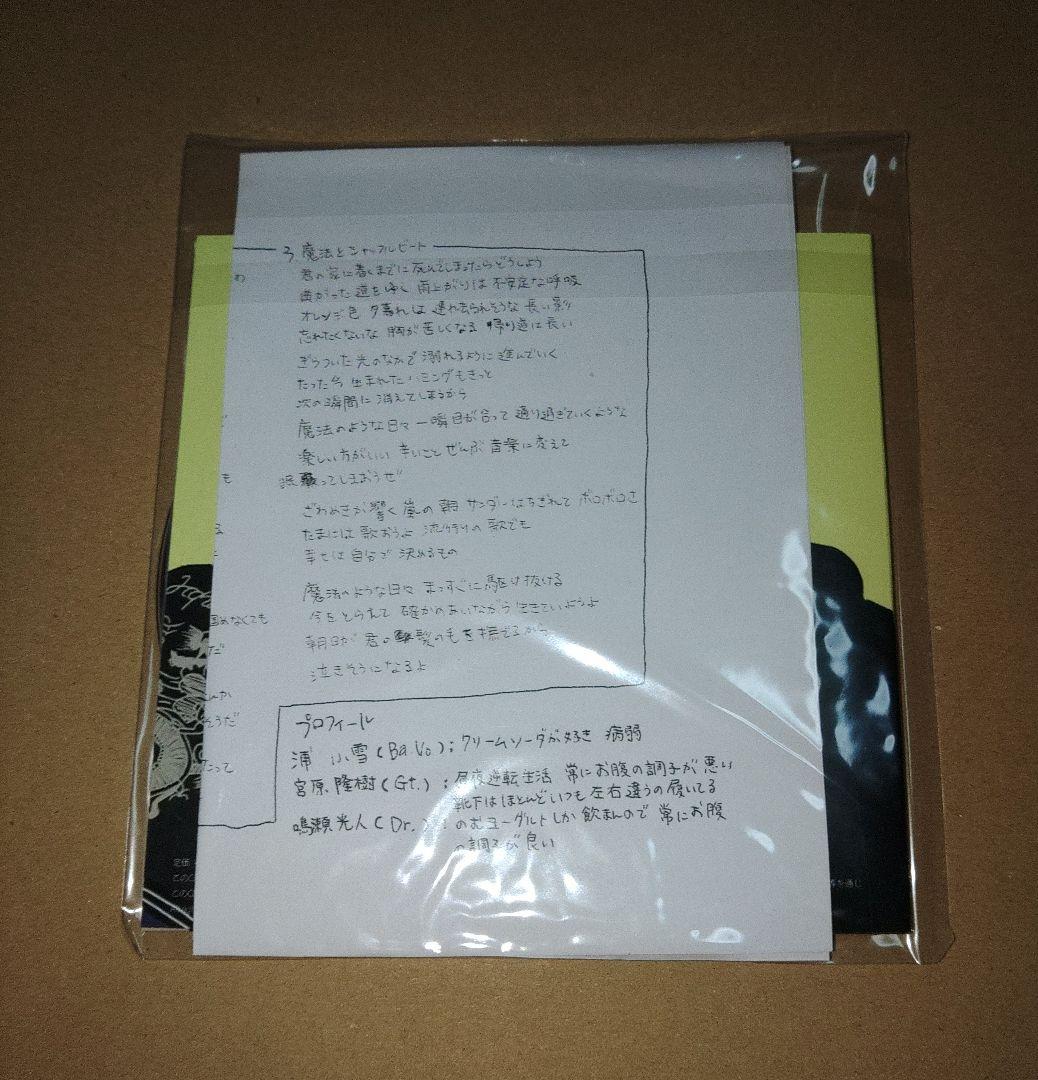 3 魔法とシャッフルビート
君の家に着くまでに死んでしまったらどうしよう
曲がった道をゆく 雨上がりは不安定な呼吸
オレンジ色 夕暮れは 連れ去られそうな 長い影
忘れたくないな 胸が苦しくなる 帰り道は長い
ぎらついた光のなかで溺れるように進んでいく
たった今 生まれたハミングもきっと
次の瞬間に消えてしまうから
魔法のような日々 一瞬目が合って 通り過ぎていくような
楽しい方がいい 辛いこと ぜんぶ音楽に変えて
ってしまおうぜ
ざわめきが響く嵐の朝 サンダーはちぎれて ボロボロさ
たまには歌おうよ 流行りの歌でも
幸せは自分で決めるもの
魔法のような日々 まっすぐに駆け抜ける
今をとらえて 確かめあいながら生きていようよ
朝日が 君の髪の毛を撫でるから
泣きそうになるよ
も
固めなくても
だ
そうだ
たって
プロフィール
浦 小雪(Ba.Vo);クリームソーダが好き 病弱
宮原隆樹(Gt.);昼夜逆転生活 常にお腹の調子が悪い
靴下はほとんどいつも左右違うの履いてる
鳴瀬光人(Dr.):のむヨーグルトしか飲まんので 常にお腹
の調子が良い
定価
このC
このC